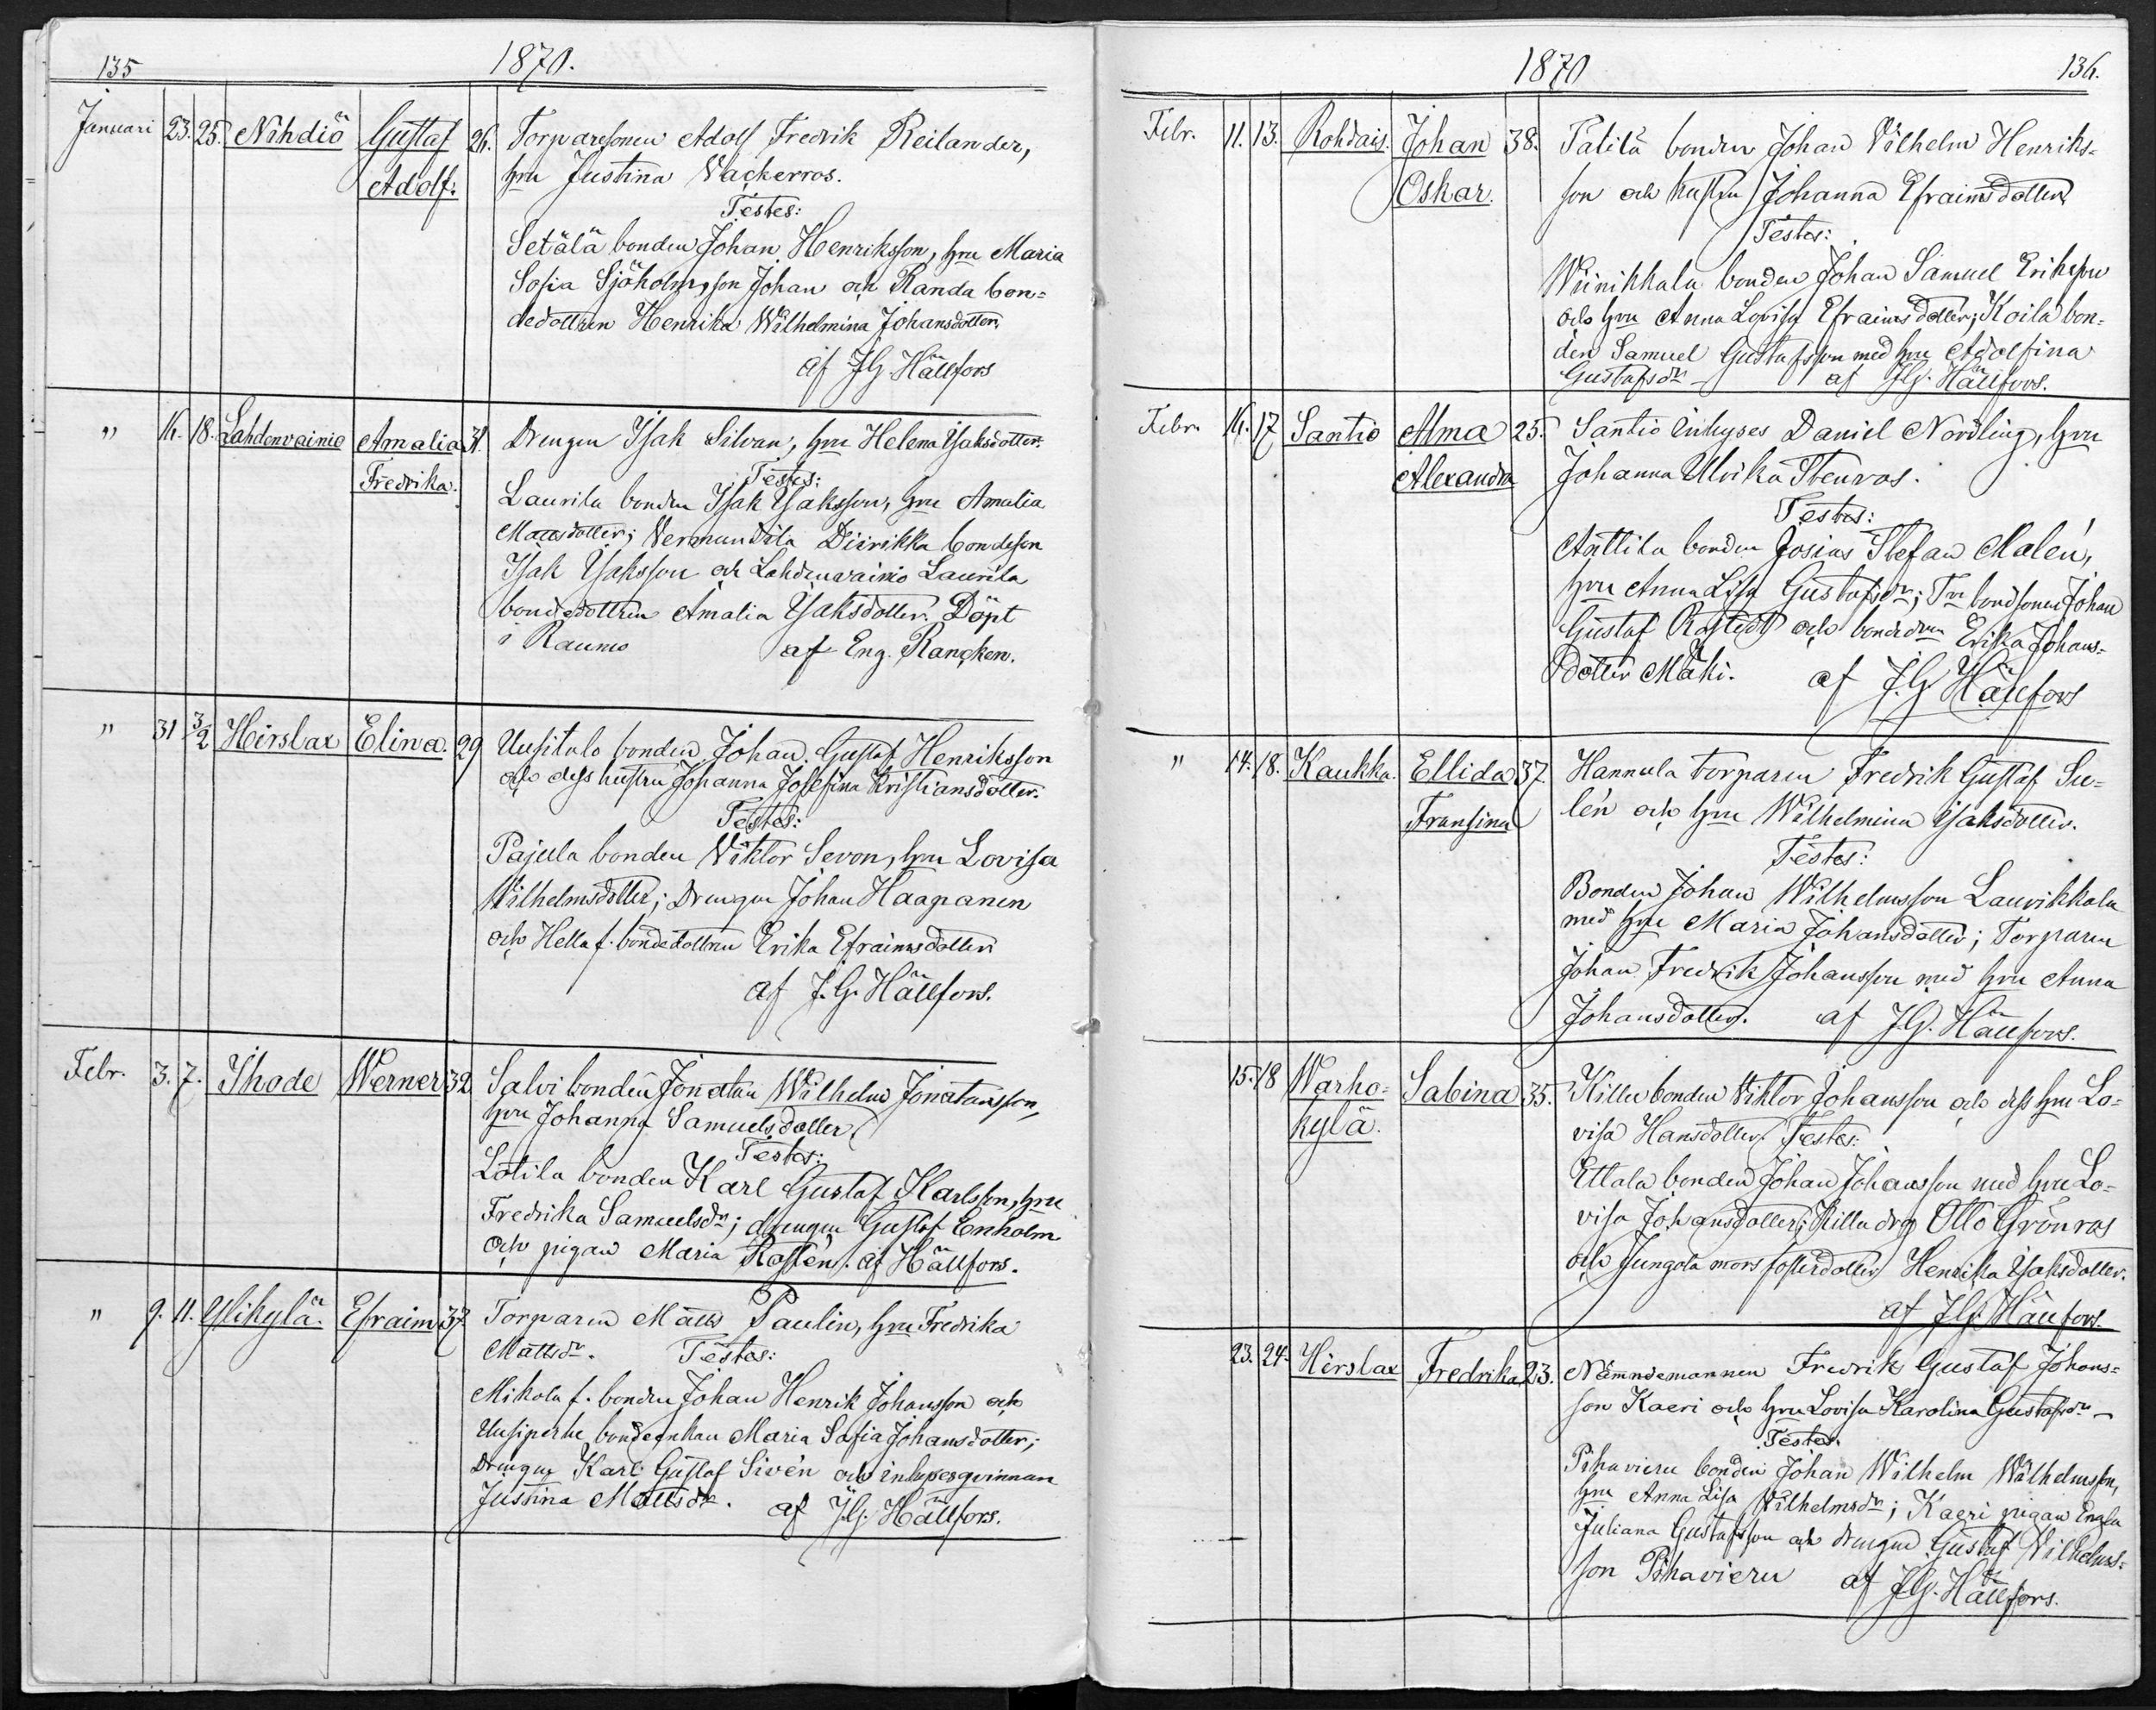 135
1870.
Januari 23. 25. Nihdiö Gustaf 26. Torparesonen Adolf Fredrik Reilander,
Adolf. hru Justina Vackerros.
Testes:
Setälä bonden Johan Henriksson, hru Maria
Sofia Sjöholm, son Johan och Randa bon=
dedottren Henrika Wilhelmina Johansdotter,
af JG Hällfors
" 16. 18. Lahdenvainio Amalia 31. Drengen Isak Silvan, hru Helena Isaksdotter.
Fredrika. Testes:
Laurila bonden Isak Isaksson, hru Amalia
Mattsdotter; Vermundila Diirikka bondeson
Isak Isaksson och Lahdenvainio Laurila
bondedottren Amalia Isaksdotter. Döpt
i Raumo af Eng. Rancken.
" 31 3/2 Heirslax Elina. 29 Uusitalo bonden Johan Gustaf Henriksson
och dess hustru Johanna Josefina Kristiansdotter.
Testes:
Pajula bonden Viktor Sevon, hru Lovisa
Vilhelmsdotter; Drengen Johan Haapanen
och Hella f. bondedottren Erika Efraimsdotter
af J.G. Hällfors.
Febr. 3. 7. Ihode Werner 32 Salvi bonden Jonatan Wilhelm Jonatansson,
hru Johanna Samuelsdotter.
Testes:
Lotila bonden Karl Gustaf Karlsson, hru
Fredrika Samuelsdr; drengen Gustaf Enholm
och pigan Maria Rostén. af Hällfors.
" 9. 11. Ylikylä. Efraim 37 Torparen Matts Paulin, hru Fredrika
Mattsdr. Testes:
Mikola f. bonden Johan Henrik Johansson och
Uusiperhe bondeenkan Maria Sofia Johansdotter;
Drengen Karl Gustaf Sivén och inhysesqvinnan
Justina Mattsdr. af J.G. Hällfors.
1870 136.
Febr. 11. 13. Rohdais. Johan 38. Patila bonden Johan Vilhelm Henriks=
Oskar. son och hustru Johanna Efraimsdotter
Testes:
Wiinikkala bonden Johan Samuel Eriksson
och hru Anna Lovisa Efraimsdotter; Koila bon=
den Samuel Gustafsson med hru Adolfina
Gustafsdr af J.G. Hällfors.
Febr. 16. 17 Santio Alma 25. Santio inhyses Daniel Nordling, hru
Alexandra Johanna Ulrika Stenros.
Testes:
Anttila bonden Josias Stefan Malén,
hru Anna Lisa Gustafsdr; bondsonen Johan
Gustaf Rostedt och bondedrn Erika Johans=
dotter Mäki. af J.G Hällfors
" 14. 18. Kaukka. Ellida 37. Hannula torparen Fredrik Gustaf Su=
Fransina lén och hru Wilhelmina Isaksdotter.
Testes:
Bonden Johan Wilhelmsson Laurikkala
med hru Maria Johansdotter; Torparen
Johan Fredrik Johansson med hru Anna
Johansdotter. af J.G. Hällfors.
15. 18 Warho= Sabina 35. Killu bonden Viktor Johansson och dess hru Lo=
kylä. visa Hansdotter. Testes:
Ettala bonden Johan Johansson med hru Lo=
visa Johansdotter; Killu drg Otto Grönros
och Jungola mors fosterdotter Henrika Isaksdotter.
af J.G. Hällfors.
23. 24. Hirslax Fredrika 23. Nämndemannen Fredrik Gustaf Johans=
son Kaeri och hru Lovisa Karolina Gustafsdr
Testes.
Pihavieru bonden Johan Wilhelm Wilhelmsson,
hru Anna Lisa Wilhelmsdr; Kaeri pigan Engla
Juliana Gustafsson och drengen Gustaf Vilhelms=
son Pihavieru af J.G. Hällfors.